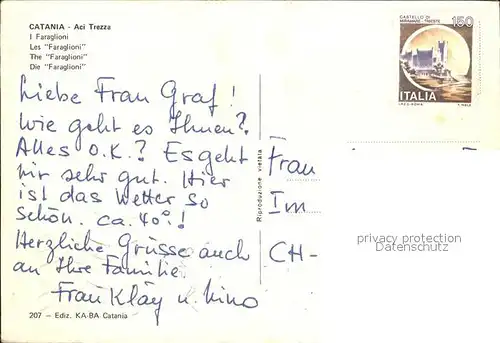 CATANIA - Aci Trezza
I Faraglioni
Les "Faraglioni"
The "Faraglioni"
Die "Faraglioni"
Liebe Frau Graf!
Wie geht es Ihnen?
Alles O.K.? Es geht
mir sehr gut. Hier
ist das Wetter so
schön. ca. 40°!
Herzliche Grüsse auch
an Ihre Familie.
Frau Kläy u. Nino
207 - Ediz. KA-BA Catania
Riproduzione vietata
CASTELLO DI
MIRAMARE - TRIESTE
150
ITALIA
I.P.Z.S. - ROMA
Frau
Im
CH-
privacy protection
Datenschutz